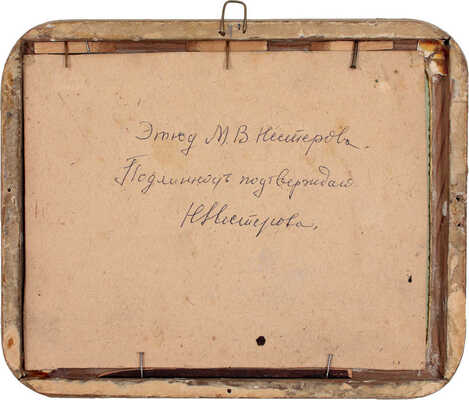 Этюд М.В Нестерова.
Подлинность подтверждаю
Н.Нестерова.